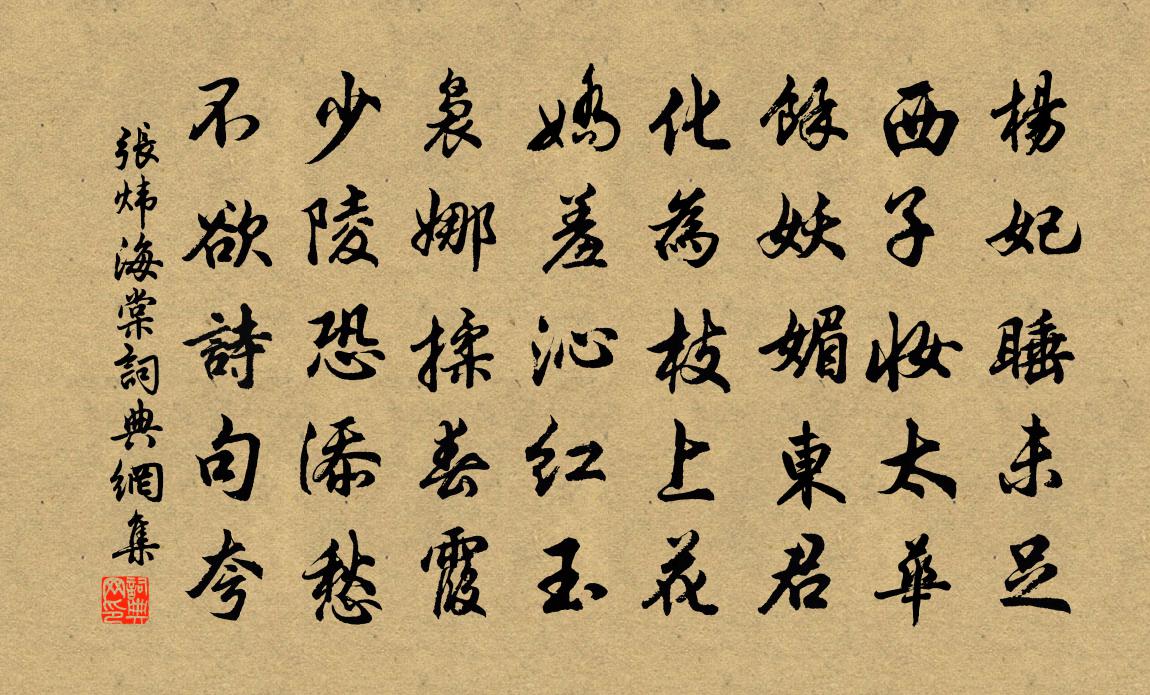 楊妃睡未足
西子妝太華
餘妖媚東君
化為枝上花
嬌羞沁紅玉
裊娜揉春霞
少陵恐添愁
不欲詩句夸
張煒海棠詞典網集
詞典网印